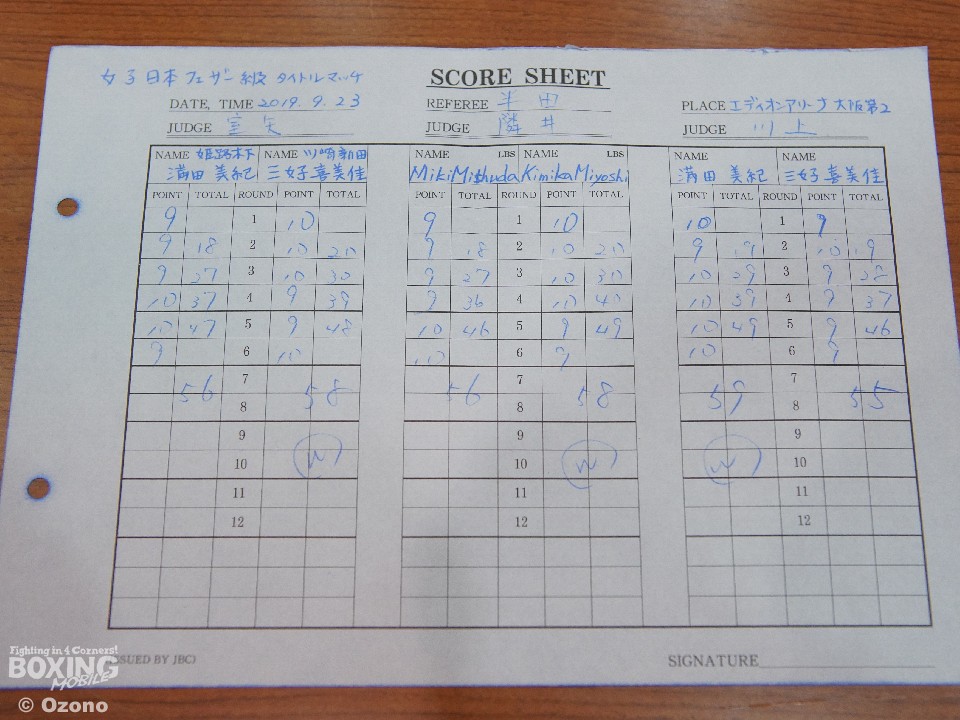 女子日本フェザー級 タイトルマッチ
SCORE SHEET
DATE, TIME 2019. 9. 23 REFEREE 半田 PLACE エディオンアリーナ大阪第2
JUDGE 宮矢 JUDGE 隣井 JUDGE 川上
NAME 姫路木下 NAME 川崎新田 NAME LBS NAME LBS NAME NAME
満田 美紀 三好喜美佳 Miki Mitsuda Kimika Miyoshi 満田 美紀 三好喜美佳
POINT TOTAL ROUND POINT TOTAL POINT TOTAL ROUND POINT TOTAL POINT TOTAL ROUND POINT TOTAL
9 1 10 9 1 10 10 1 9
9 18 2 10 20 9 18 2 10 20 9 19 2 10 19
9 27 3 10 30 9 27 3 10 30 10 29 3 9 28
10 37 4 9 39 9 36 4 10 40 10 39 4 9 37
10 47 5 9 48 10 46 5 9 49 10 49 5 9 46
9 6 10 10 6 9 10 6 9
7 7 7
56 58 56 58 59 55
8 8 8
9 9 9
10 W 10 W W 10
11 11 11
12 12 12
ISSUED BY JBC) SIGNATURE
Fighting in 4 Corners!
BOXING
MOBILE
© Ozono